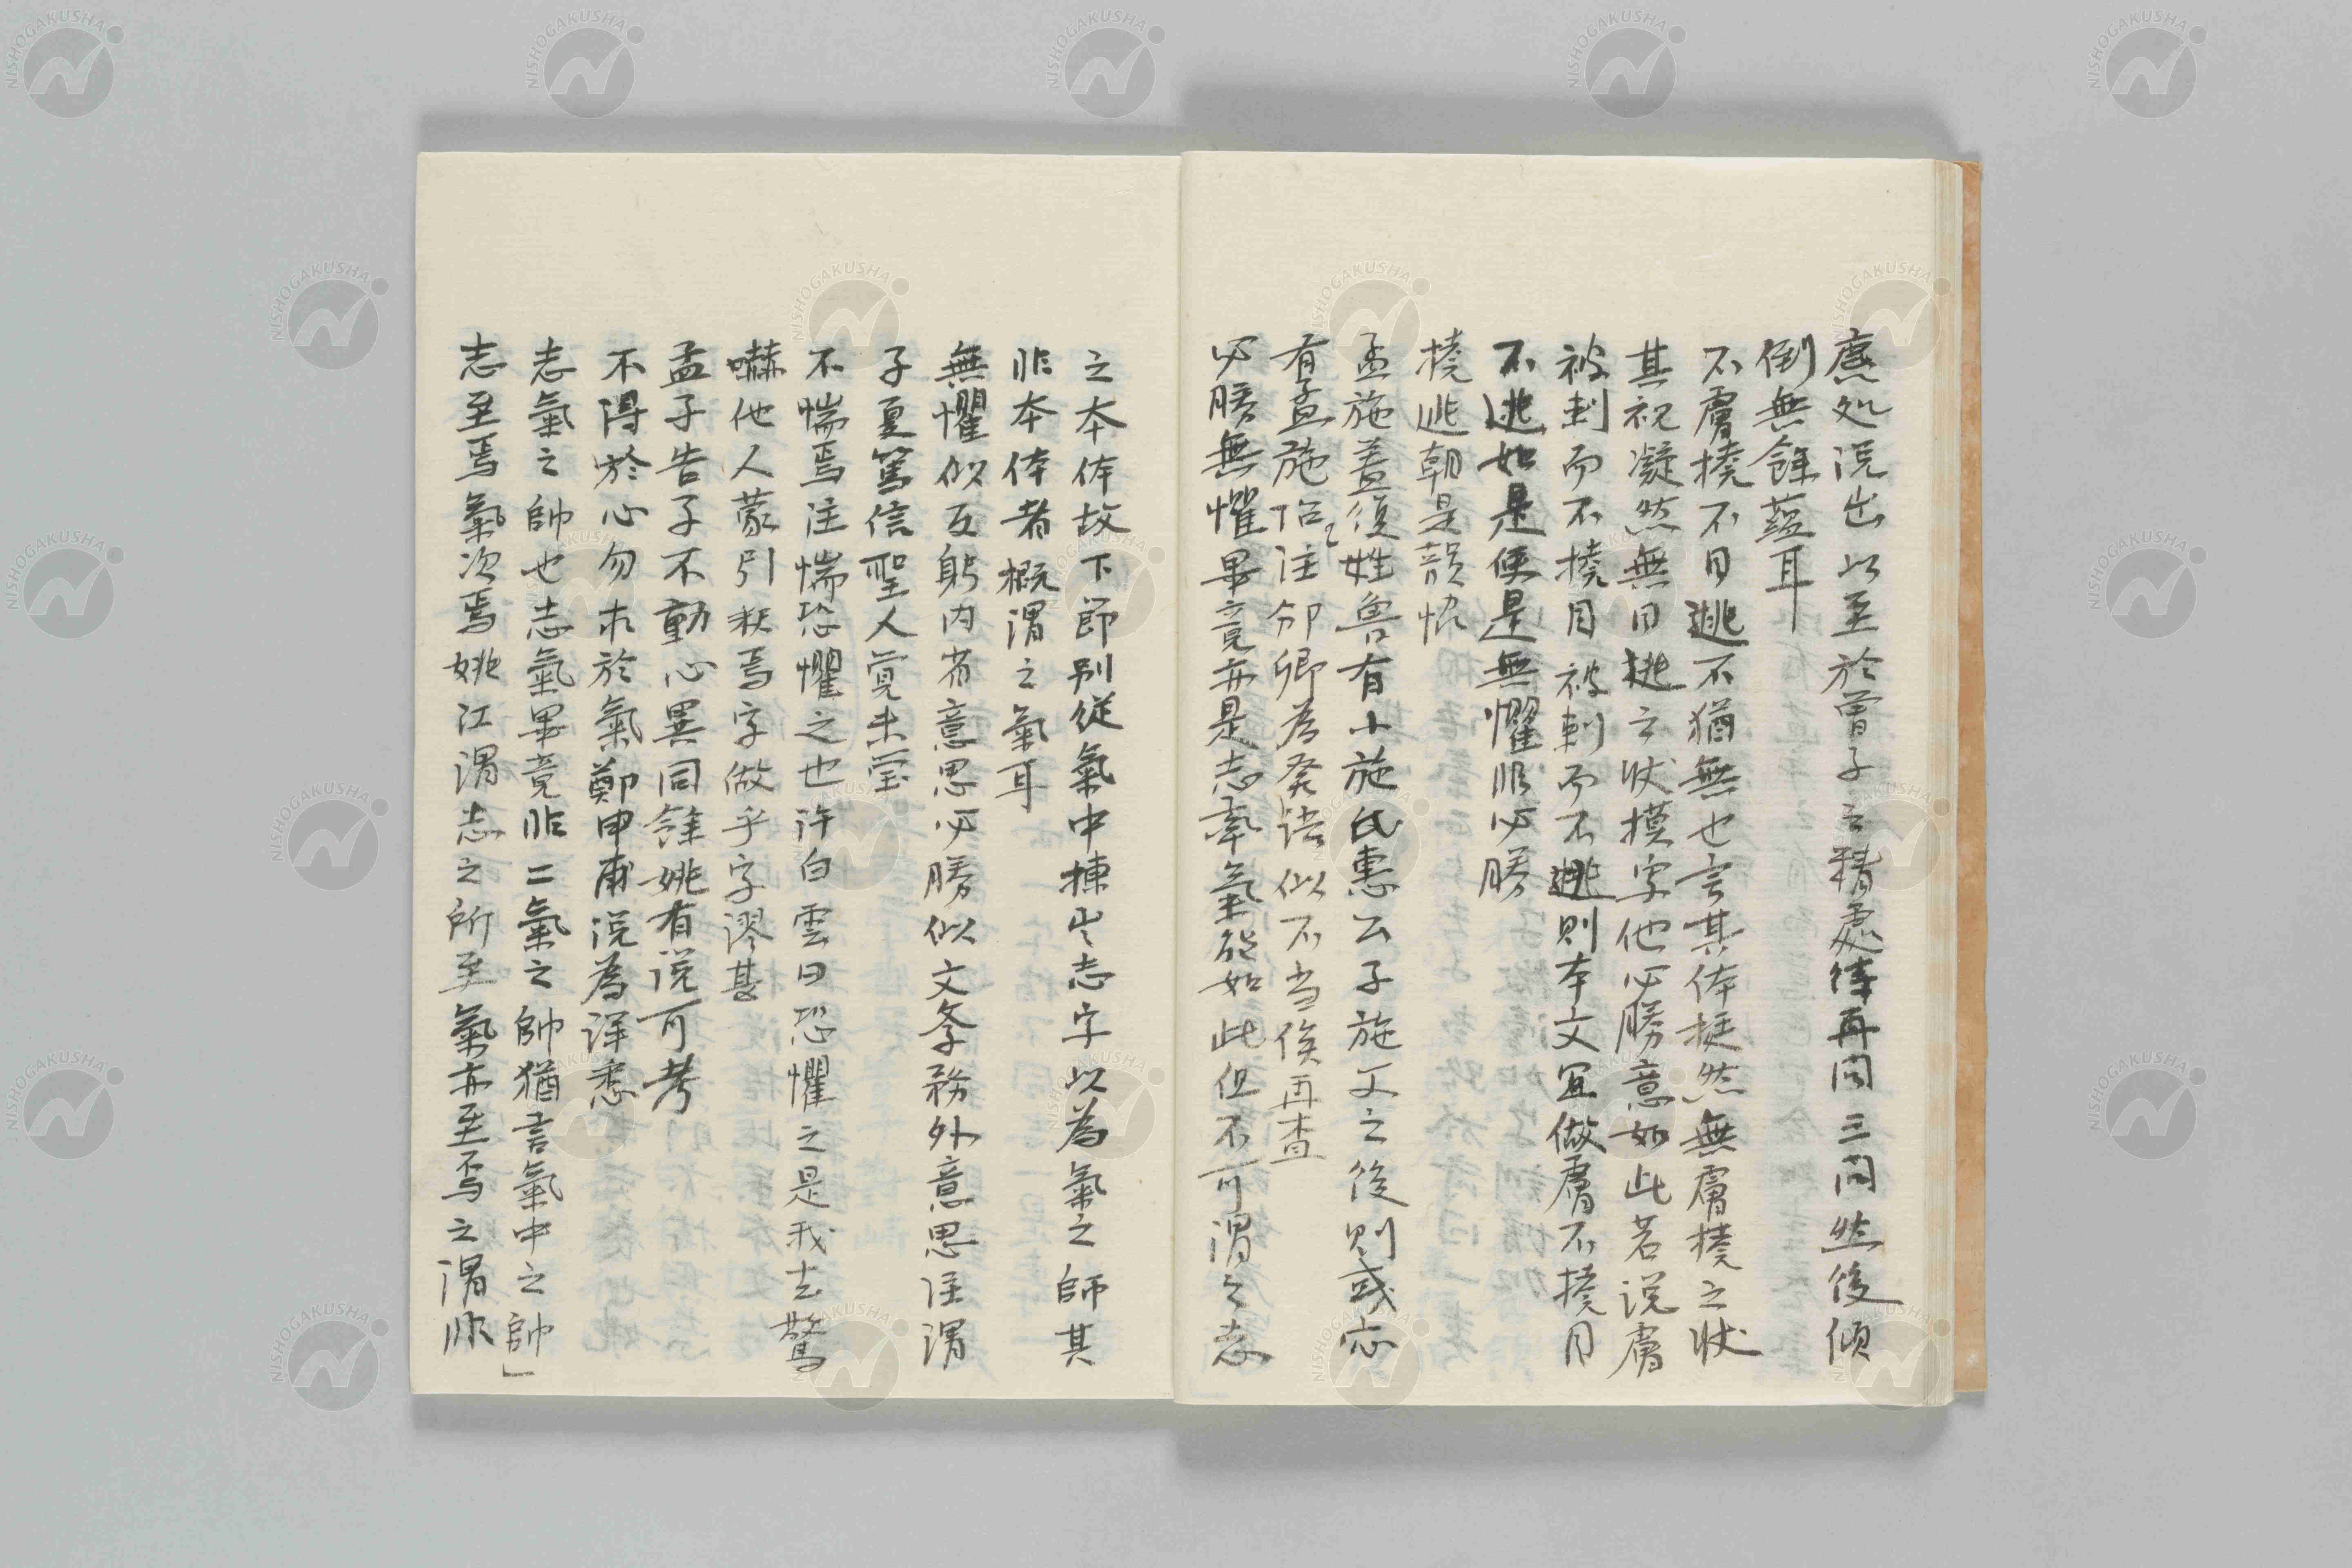 處説出以至於曽子之精處待再問三問然後傾
倒無餘蘊耳
不膚撓不目逃不猶無也言其体挺然無膚撓之状
其視凝然無目逃之状摸字他必勝意如此若説膚
被刺而不撓目被刺而不逃則本文宜做膚不撓目
不逃如是便是無懼非必勝
撓逃朝是韻恊
孟施盖復姓魯有小施氏惠公子施父之後則或亦
有孟施𠮷注介卿為発語似不当俟再査
必勝無懼畢竟亦是志牽氣從如此但不可謂之志
之本体故下節別從氣中揀出志字以為氣之師其
非本体者概謂之氣耳
無懼似反躬内省意思必勝似文多務外意思注謂
子夏篤信聖人覚未瑩
不惴焉注惴恐懼之也許白雲曰恐懼之是我去驚
嚇他人蒙引疑焉字做乎字謬甚
孟子告子不動心異同餘姚有説可考
不得於心勿求於氣鄭申甫説為詳悉
志氣之帥也志氣畢竟非二氣之帥猶言氣中之帥」
志至焉氣次焉姚江謂志之所至氣亦至焉之謂非
NISHOGAKUSHA